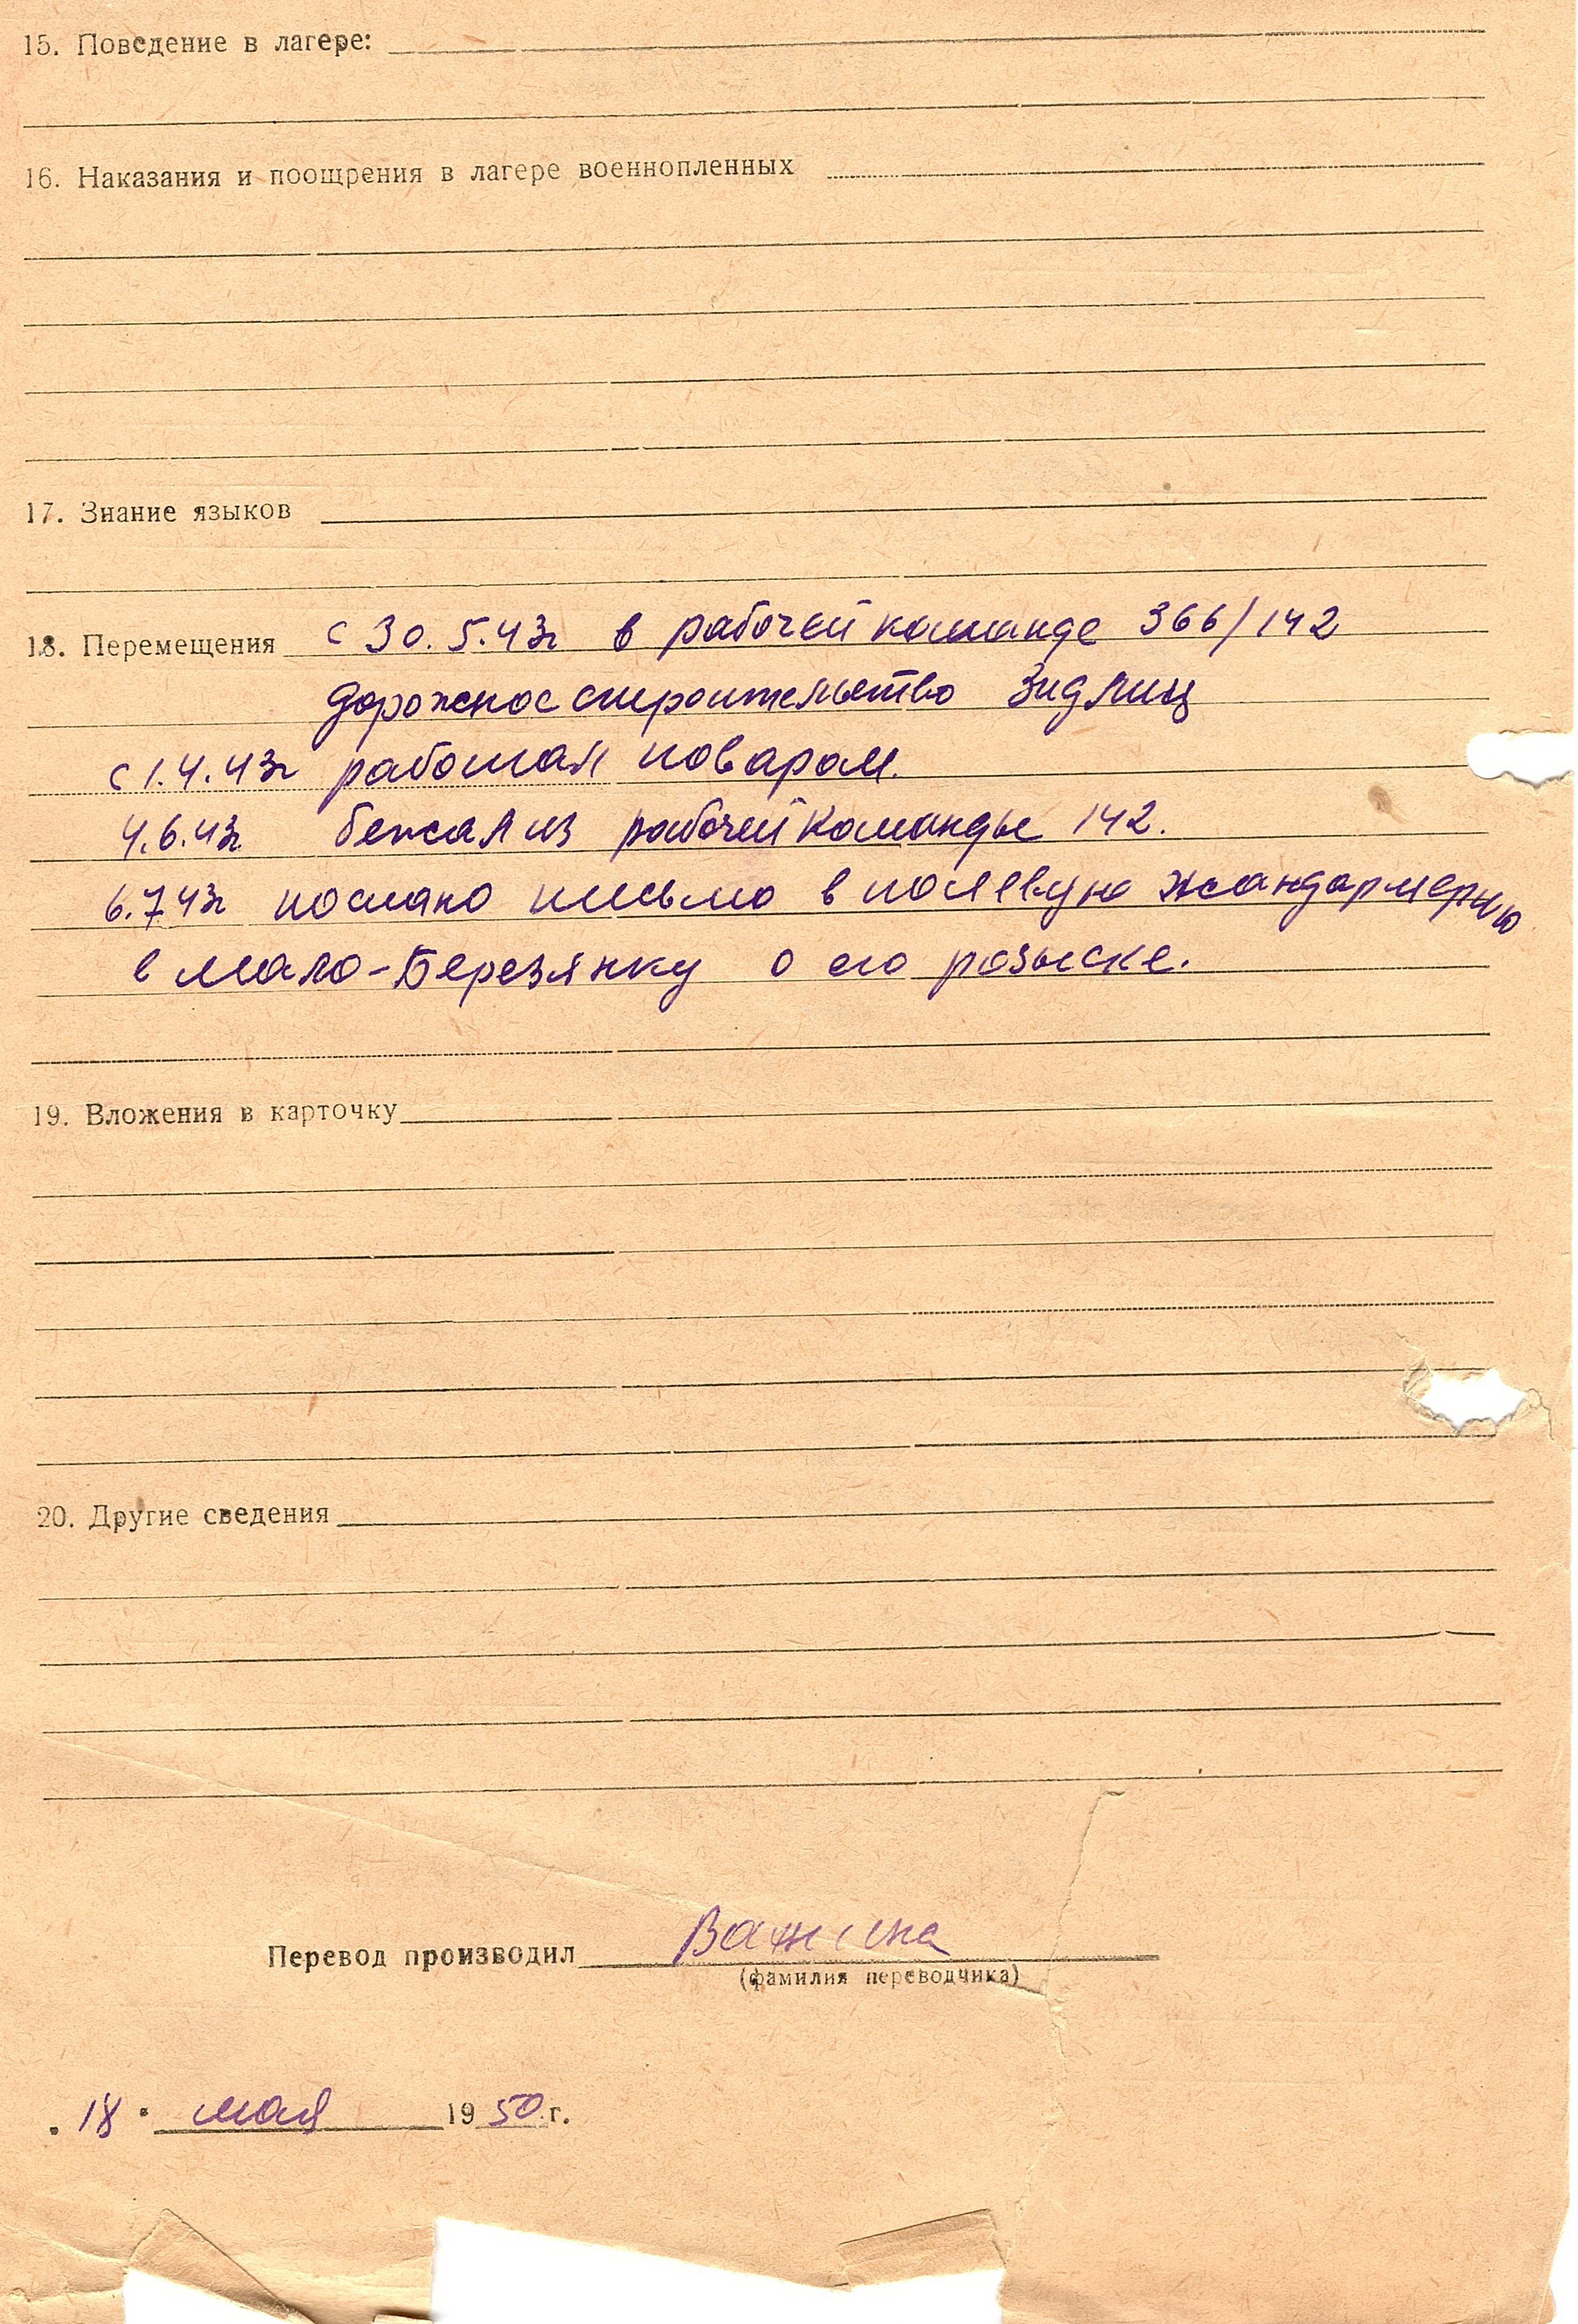 15. Поведение в лагере:
16. Наказания и поощрения в лагере военнопленных
17. Знание языков
18. Перемещения с 30.5.43г в рабочей команде 366/142
дорожное строительство Зидлиц
с 1.4.43г работал поваром.
4.6.43г бежал из рабочей команды 142.
6.7.43г послано письмо в полевую жандармерию
в Мало-Березянку о его розыске.
19. Вложения в карточку
20. Другие сведения
Перевод производил
(фамилия переводчика)
18 мая 1950 г.